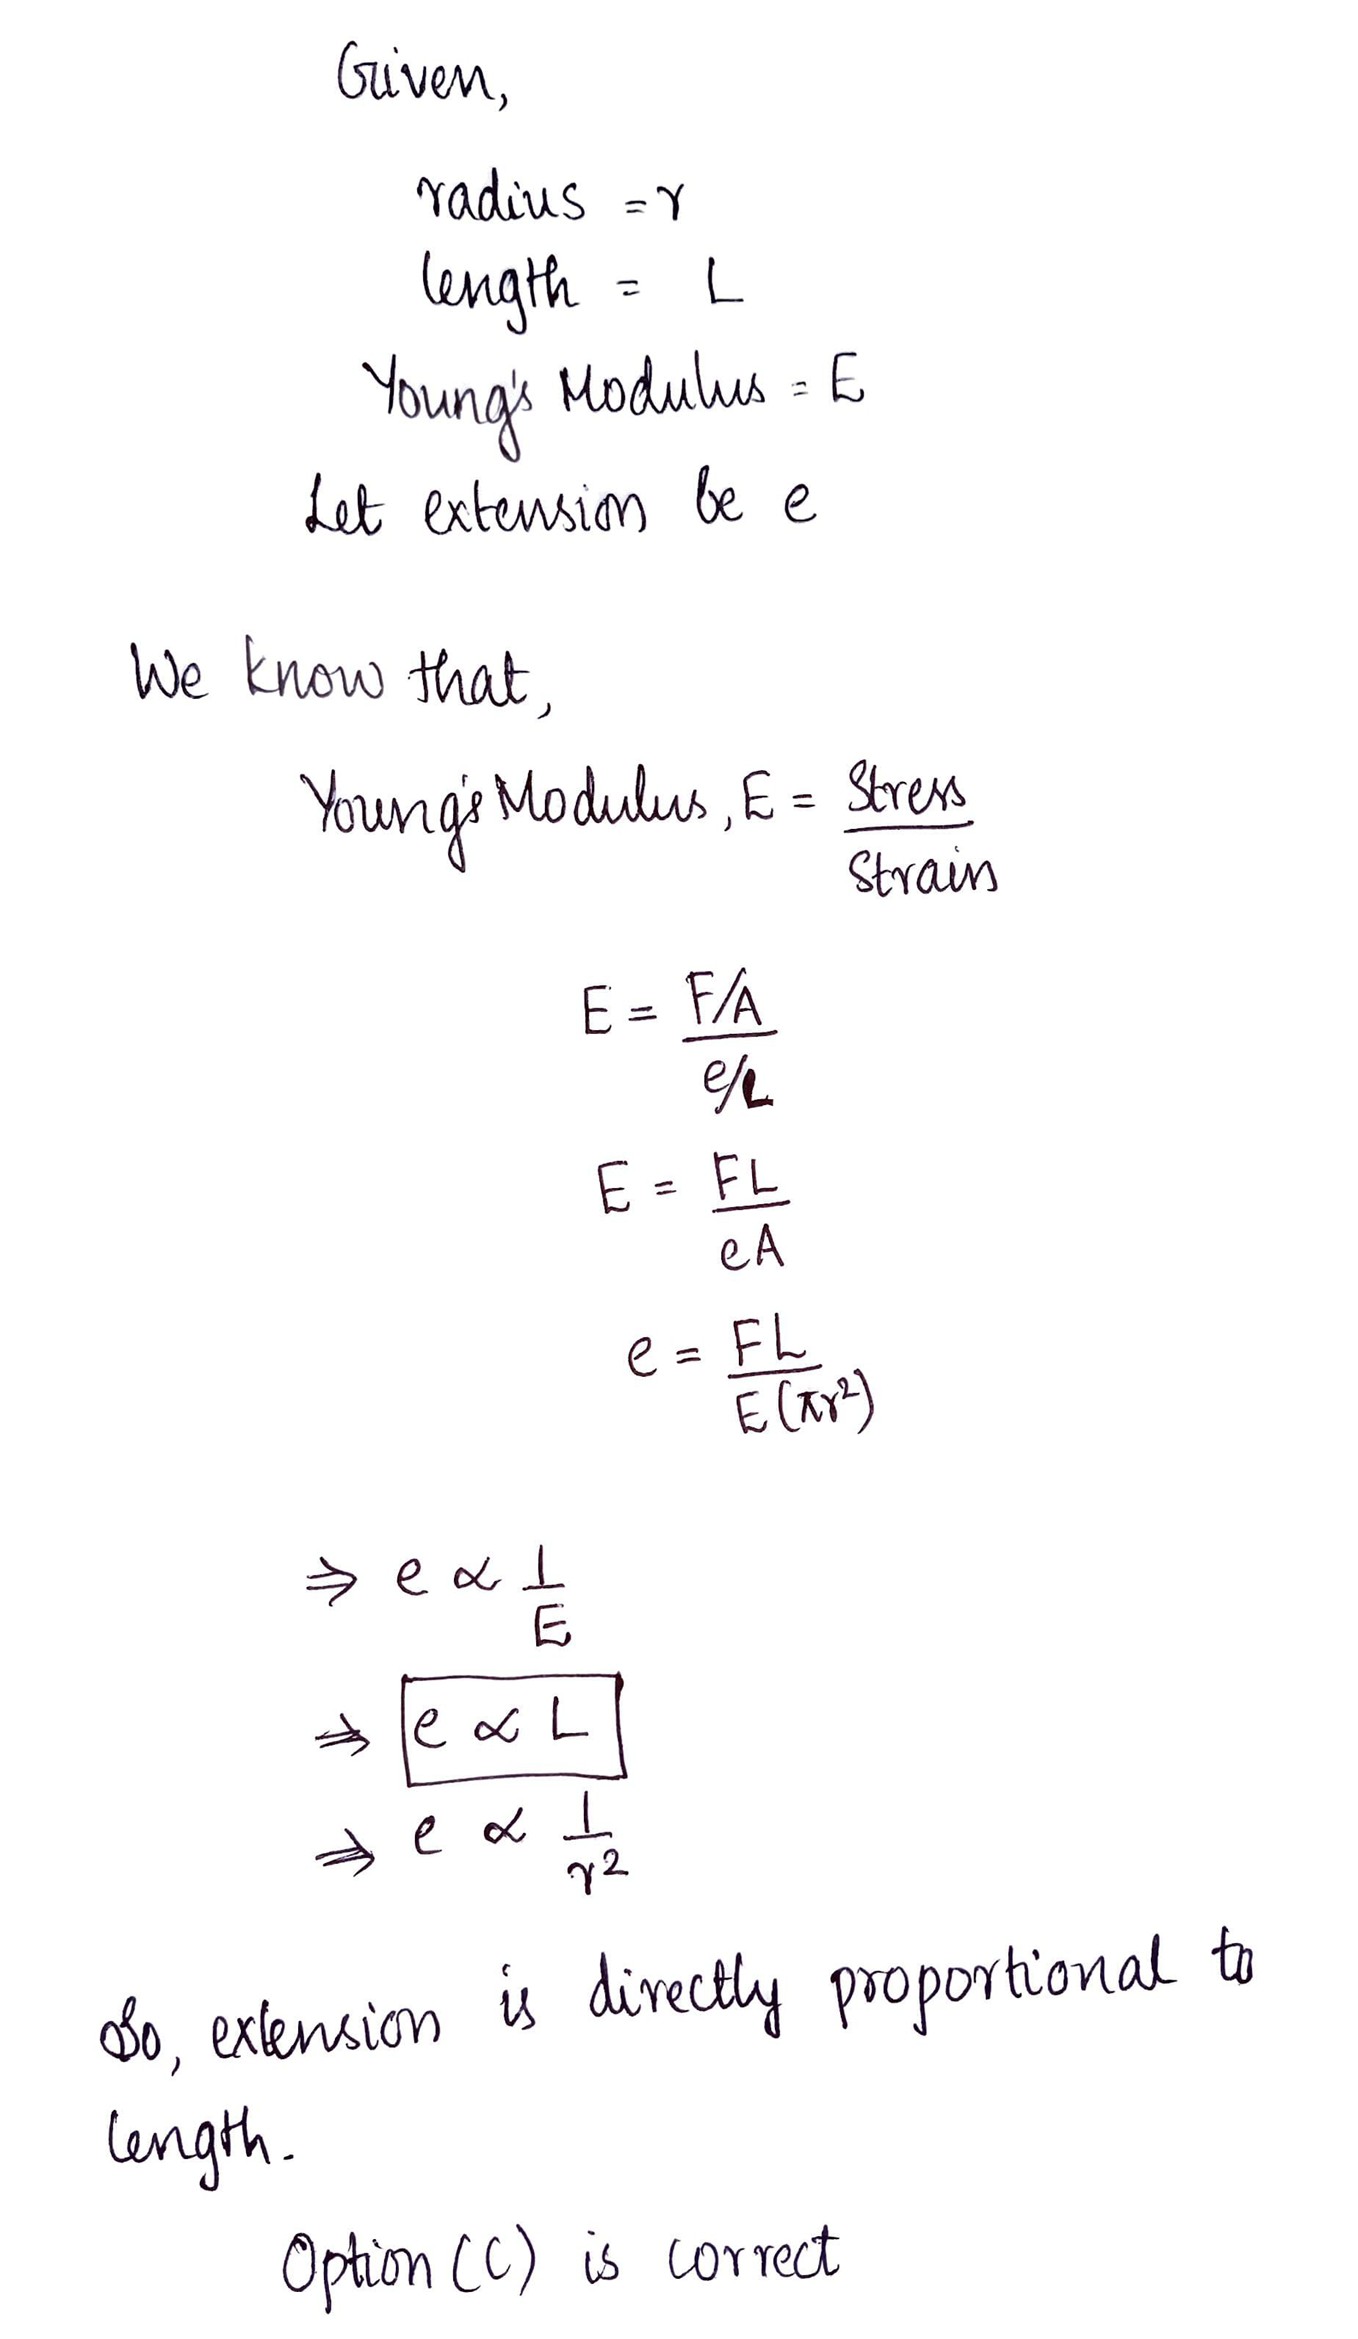 Given,
radius = r
length = L
Young's Modulus = E
Let extension be e
We know that,
Young's Modulus, E = Stress
Strain
E = F/A
e/L
E = FL
eA
e = FL
E(πr²)
⇒ e ∝ 1
E
⇒ e ∝ L
⇒ e ∝ 1
r²
So, extension is directly proportional to
length.
Option (C) is correct